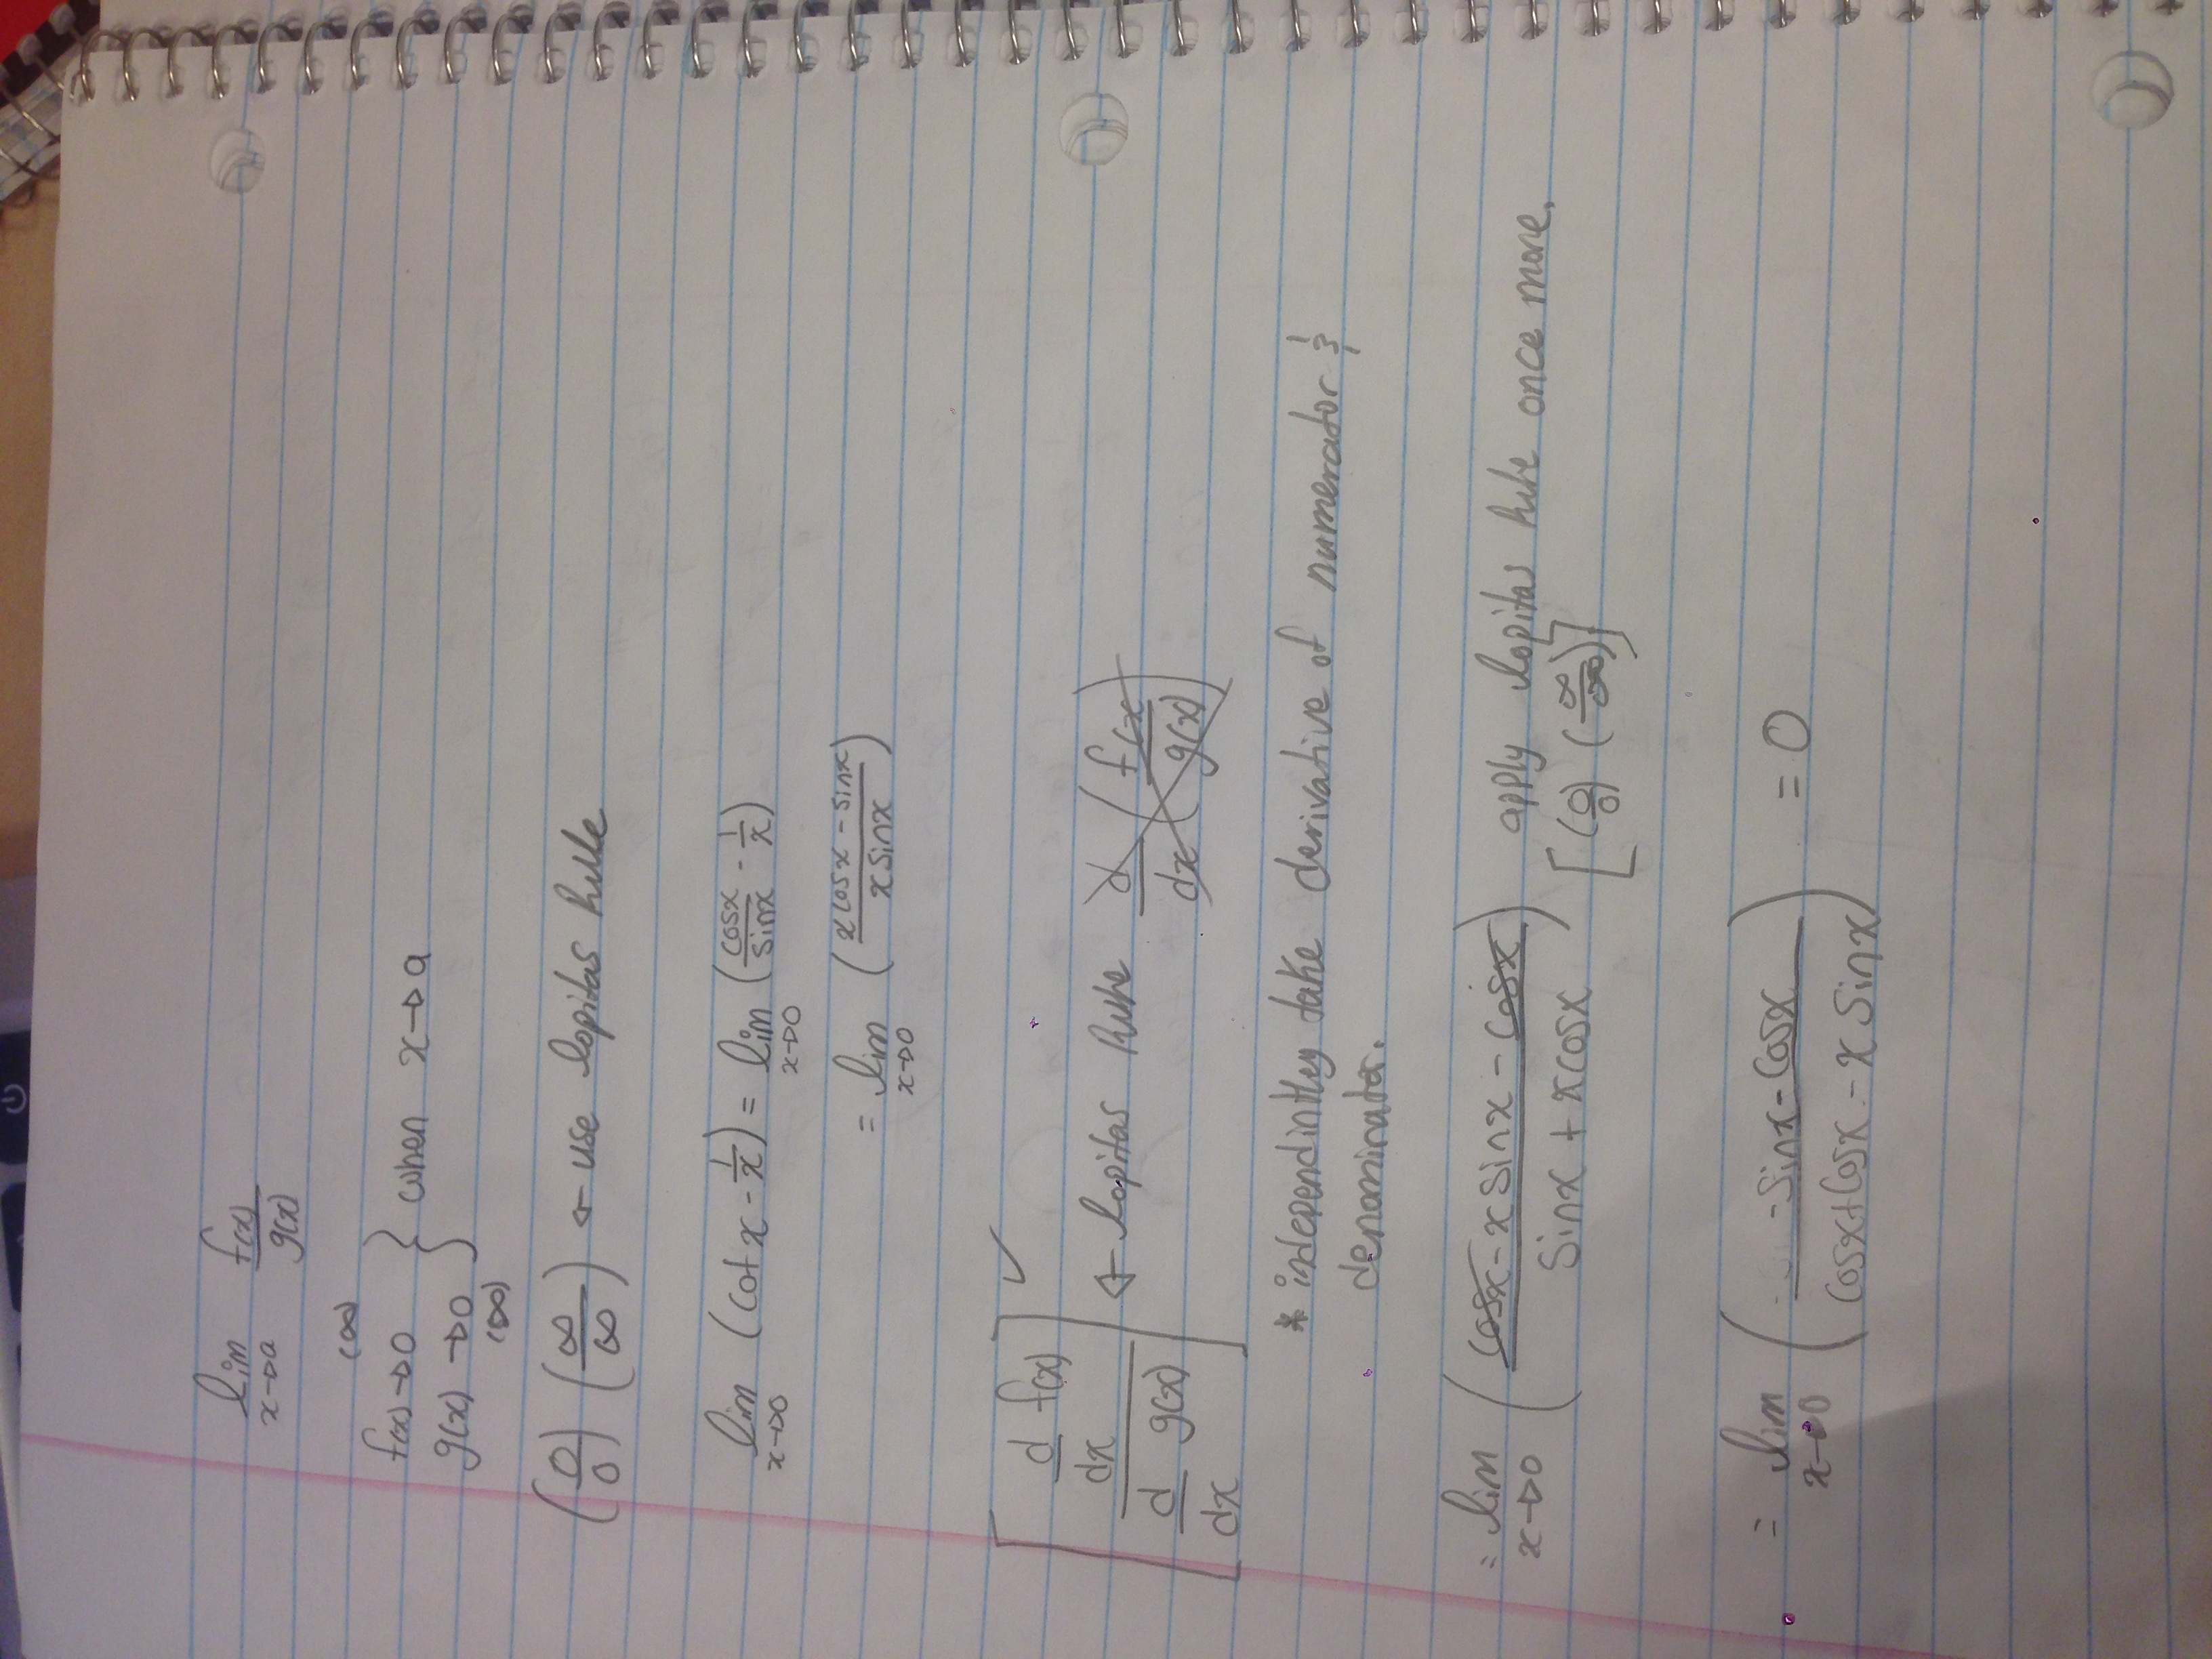 lim x→a f(x)/g(x)
f(x)→0 (∞)
g(x)→0 (∞) } when x→a
(0/0) (∞/∞) ← use lopitas rule
lim x→0 (cot x - 1/x) = lim x→0 (cosx/sinx - 1/x)
= lim x→0 (xcosx - sinx / xsinx)
[d/dx f(x) / d/dx g(x)] ✓ ← lopitas rule d/dx (f(x)/g(x))
* independintley take derivative of numerator &
denominator.
= lim x→0 (cosx - x sinx - cosx / sinx + xcosx) apply lopitas rule once more.
[(0/0) (∞/∞)]
= lim x→0 (-sinx - cosx / cosx + cosx - x sinx) = 0